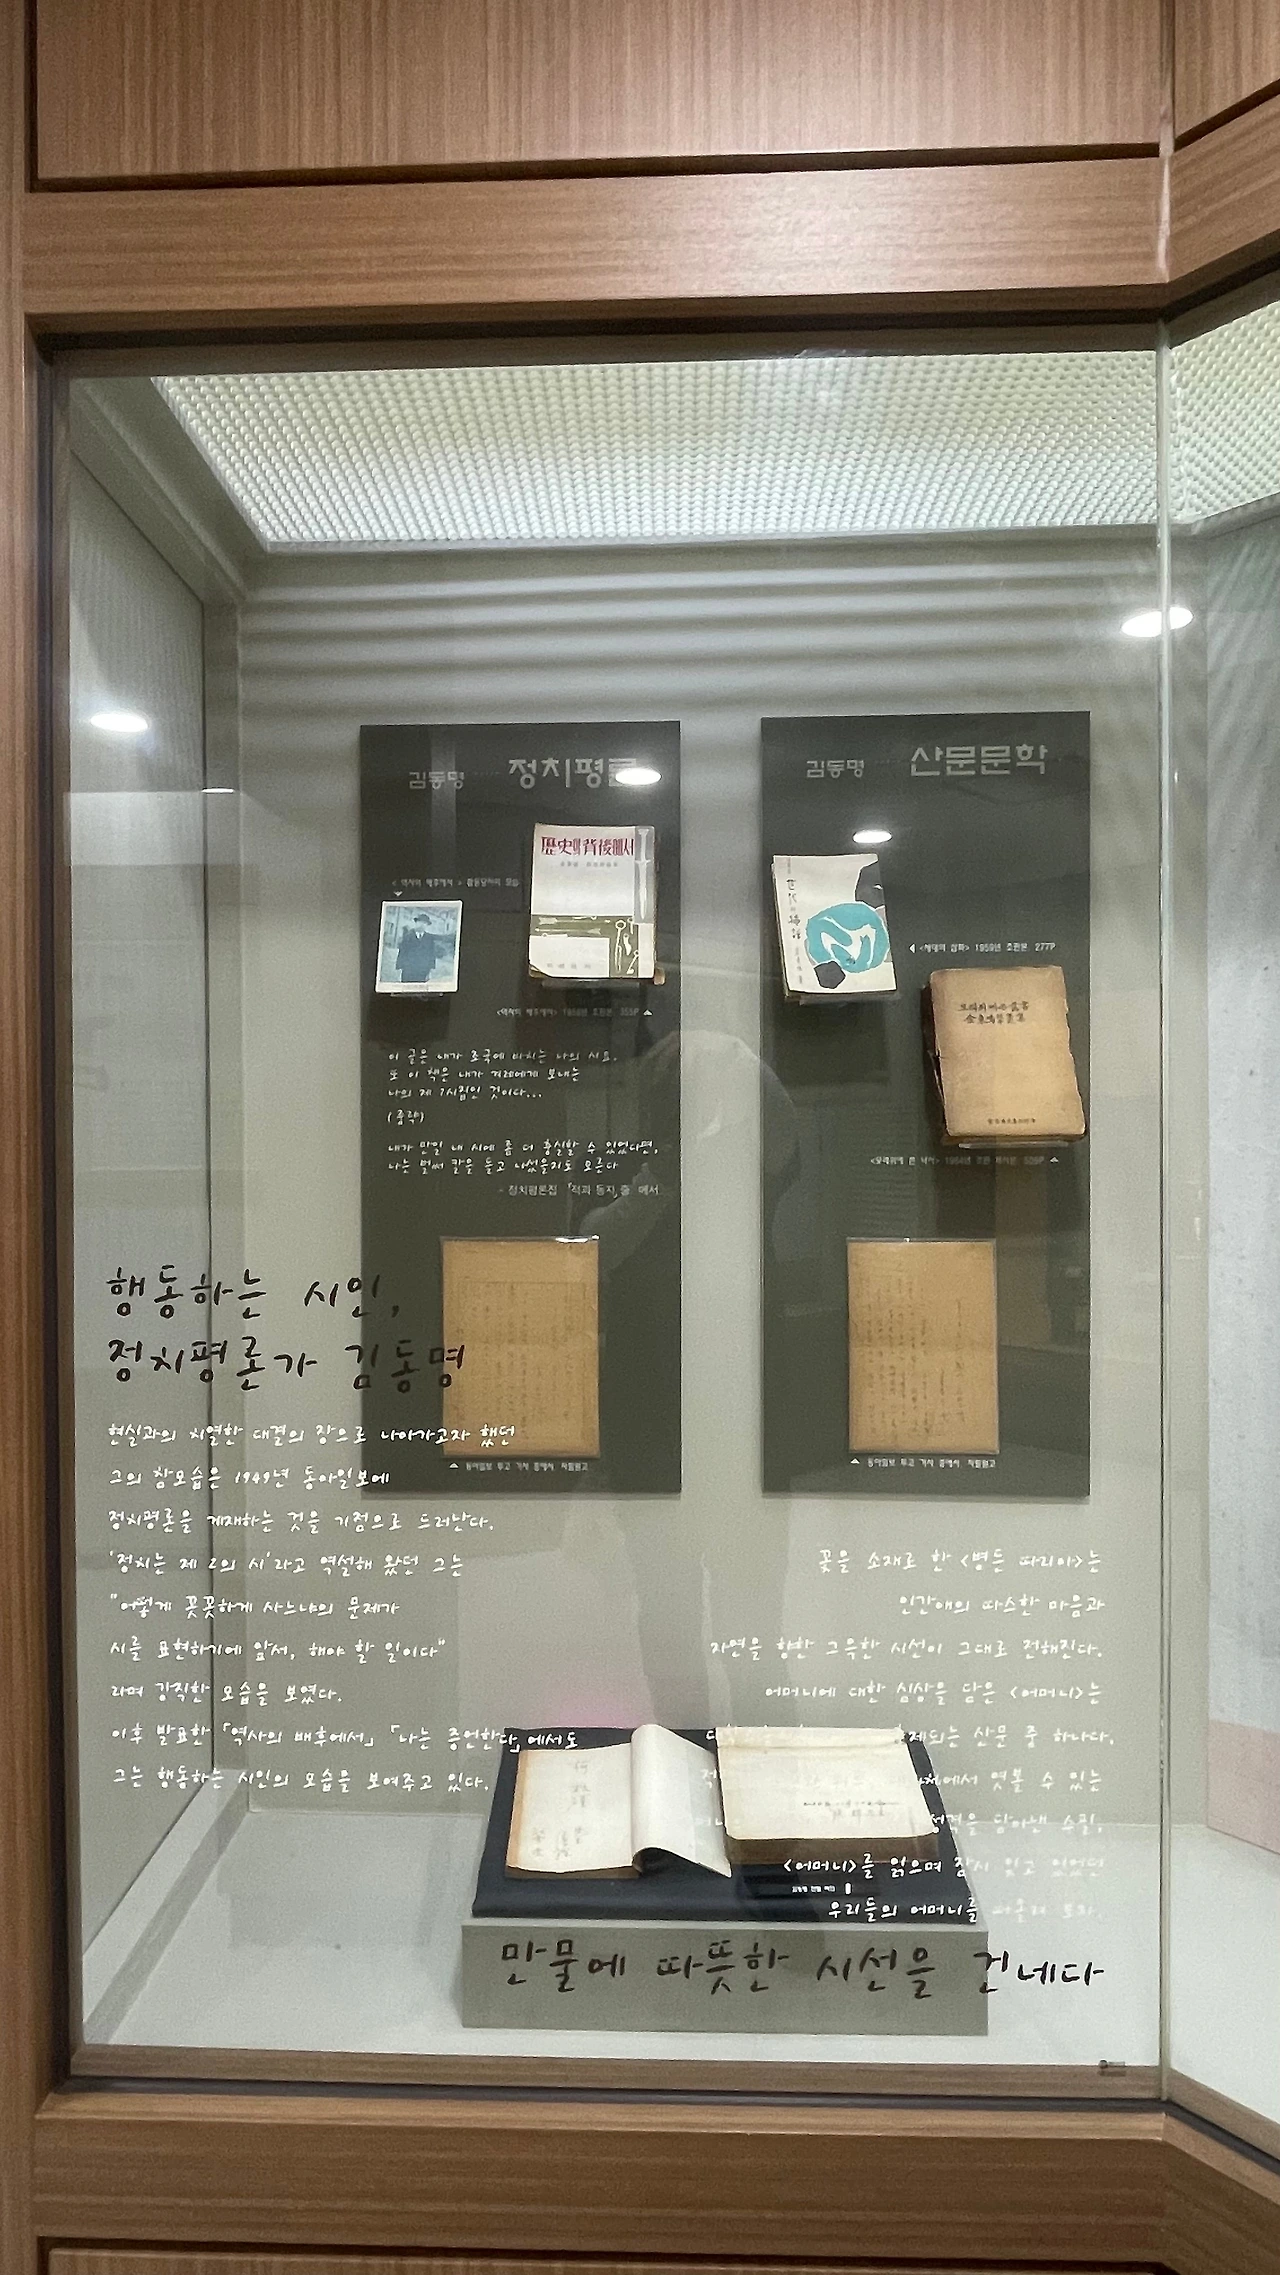 김동명 정치평론
<역사의 배후에서> 활동당시의 모습
歷史의 背後에서
<역사의 배후에서> 1958년 초판본 355P
이 글은 내가 조국에 바치는 나의 시요.
또 이 책은 내가 겨레에게 보내는
나의 제 7시집인 것이다...
(중략)
내가 만일 내 시에 좀 더 충실할 수 있었다면,
나는 벌써 칼을 들고 나섰을지도 모른다
- 정치평론집 「적과 동지」중 에서
동아일보 투고 기사 중에서, 자필원고
김동명 산문문학
<세대의 삽화> 1959년 초판본 277P
모래위에 쓴 落書
金東鳴
<모래위에 쓴 낙서>
동아일보 투고 기사 중에서, 자필원고
행동하는 시인,
정치평론가 김동명
현실과의 치열한 대결의 장으로 나아가고자 했던
그의 참모습은 1949년 동아일보에
정치평론을 게재하는 것을 기점으로 드러난다.
'정치는 제 2의 시'라고 역설해 왔던 그는
"어떻게 꿋꿋하게 사느냐의 문제가
시를 표현하기에 앞서, 해야 할 일이다"
라며 강직한 모습을 보였다.
이후 발표한 「역사의 배후에서」 「나는 증언한다」에서도
그는 행동하는 시인의 모습을 보여주고 있다.
꽃을 소재로 한 <병든 따리아>는
인간애의 따스한 마음과
자연을 향한 그윽한 시선이 그대로 전해진다.
어머니에 대한 심상을 담은 <어머니>는
산문 중 하나다.
엿볼 수 있는
담아낸 수필,
<어머니>를 읽으며 잠시 잊고 있었던
우리들의 어머니를 떠올려 보자.
만물에 따뜻한 시선을 건네다